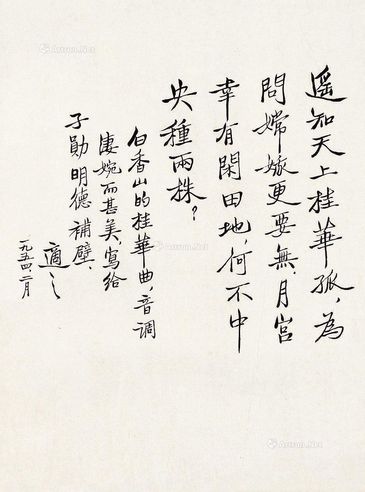 遥知天上桂華孤，為
問嫦娥更要無．月宮
幸有閑田地，何不中
央種兩株？
白香山的桂華曲，音调
淒婉而甚美，寫给
子勛明德補壁．
適之
一九五四，二月
Artron.Net
Artron.Net
Artron.Net
Artron.Net